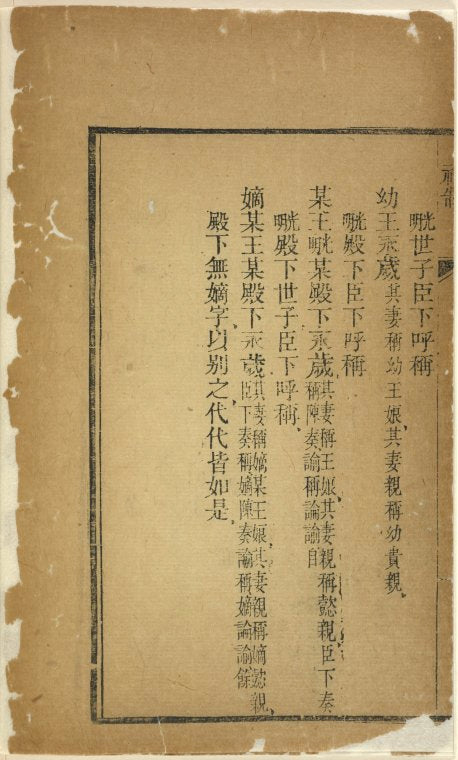 世子臣下呼稱
幼王永歲其妻稱幼王娘其妻親稱幼貴親
殿下臣下呼稱
某王某殿下永歲其妻稱王娘其妻親稱懿親臣下奏
稱陳奏諭稱諭諭目
殿下世子臣下呼稱
嫡某王某殿下永歲其妻稱嫡某王娘其妻親稱嫡懿親
臣下奏稱嫡陳奏諭稱嫡諭諭餘
殿下無嫡字以别之代代皆如是